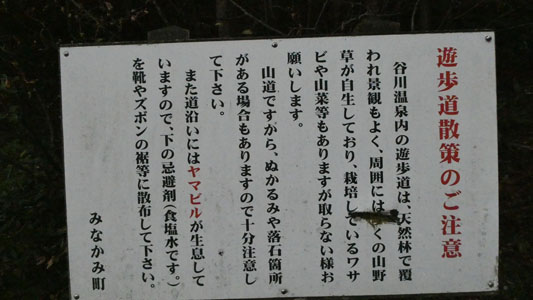 遊歩道散策のご注意
谷川温泉内の遊歩道は、天然林で覆
われ景観もよく、周囲には くの山野
草が自生しており、栽培しているワサ
ビや山菜等もありますが取らない様お
願いします。
山道ですから、ぬかるみや落石箇所
がある場合もありますので十分注意し
て下さい。
また道沿いにはヤマビルが生息して
いますので、下の忌避剤(食塩水です。)
を靴やズボンの裾等に散布して下さい。
みなかみ町